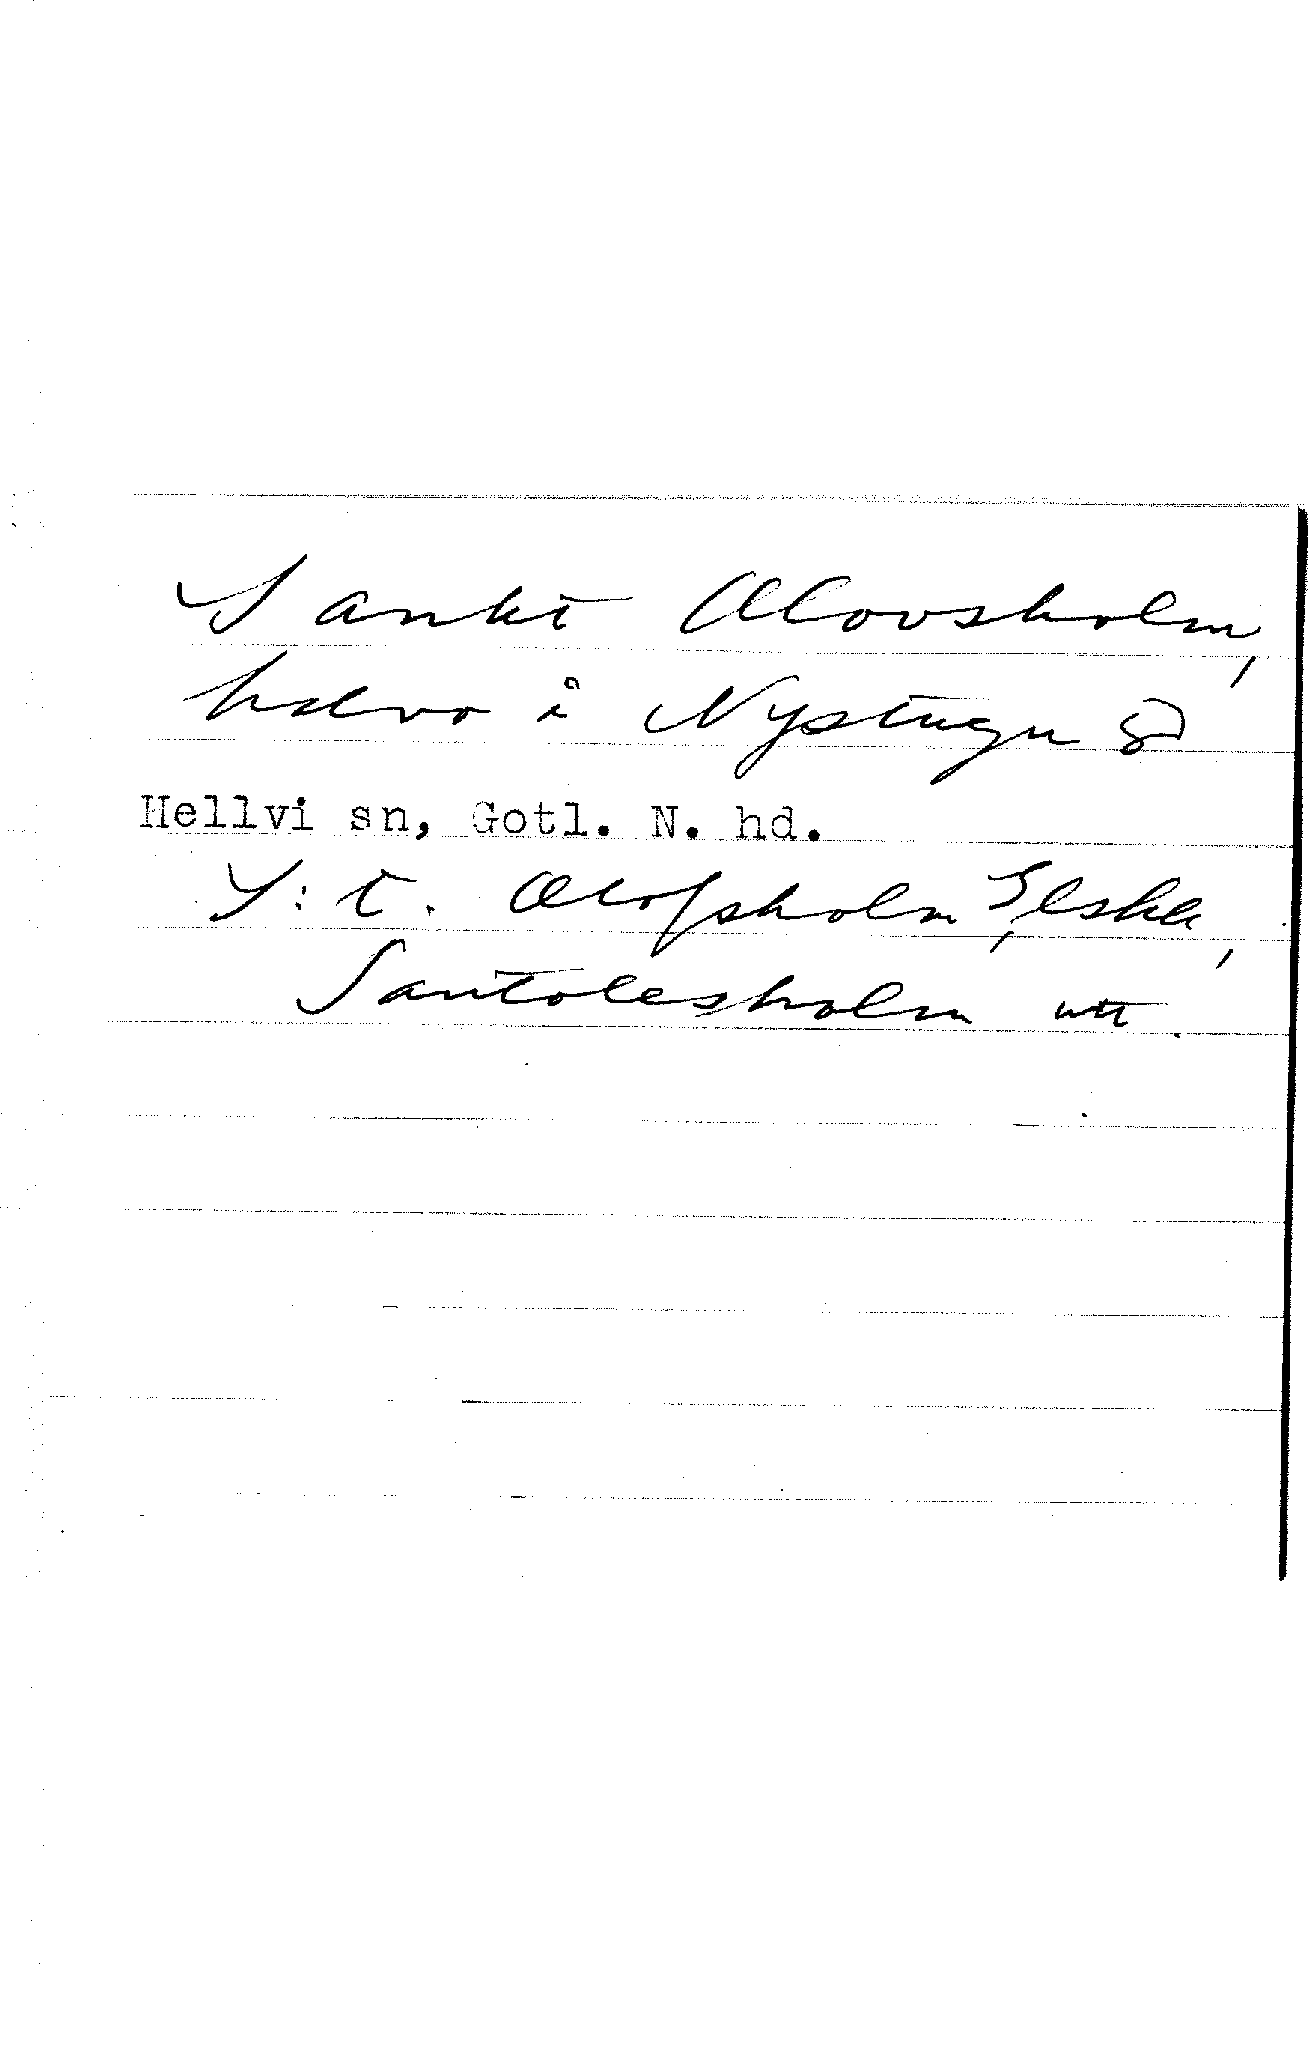 Sankt Olovsholm,
halvö i Nystugu
Hellvi sn, Gotl. N. hd.
S:t. Olofsholm, Elska,
Santolesholm utt.